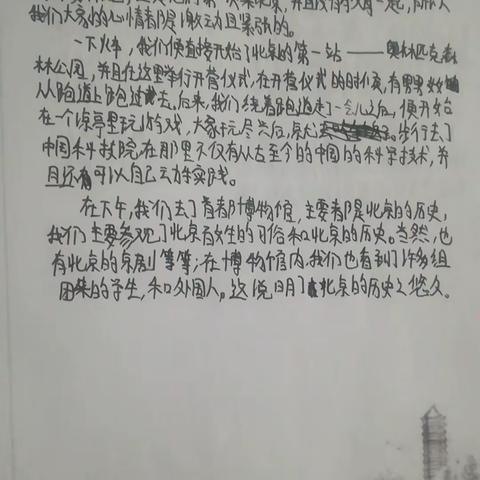 我们大家的心情都是激动且紧张的。
一下火车，我们便直接开始了北京的第一站——奥林匹克森
林公园，并且在这里举行开营仪式，在开营仪式的时候，有野
从跑道上跑过去。后来，我们绕着跑道走了一会儿之后，便开始
在一个凉亭里玩游戏，大家玩尽兴后，步行去了
中国科技院，在那里不仅有从古至今的中国的科学技术，并
且还有可以自己动手实践。
在下午，我们去了首都博物馆，主要都是北京的历史，
我们主要参观了北京百姓的习俗和北京的历史。当然，也
有北京的京剧等等；在博物馆内，我们也看到了许多组
团来的学生，和外国人。这说明了北京的历史之悠久。